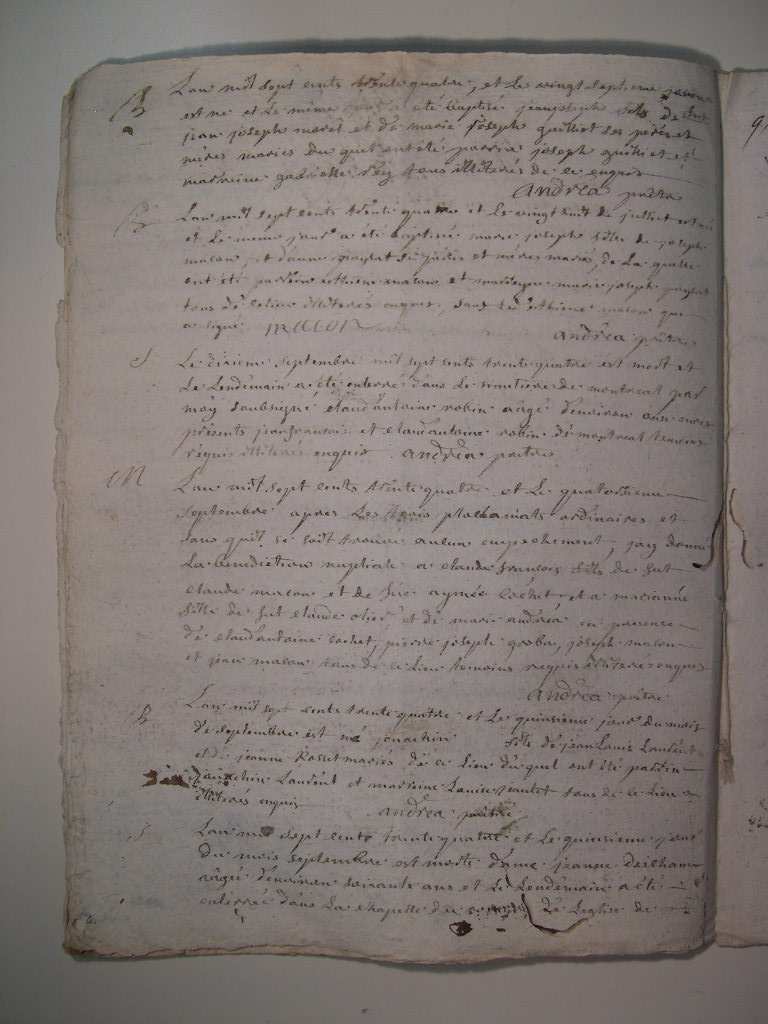 B L'an mil sept cents trente quatre, et le vingt sept
est ne et le même jour a été baptisé jeanjoseph fils de fut
jean joseph maret et de marie joseph guilliot ses pères et
mères maries du quel ont été parrin joseph et
marraine gabrielle tous illiterés de ce enquis
andréa prêtre
B L'an mil sept cents trente quatre et le vingt huit de juillet est né
et le meme jour a été baptisée marie joseph fille de joseph
macon, et d'anne ses pères et mères mariés, de la quelle
ont été parrin estienne macon et marraine marie joseph
tous de ce lieu illiterés enquis, sauf led. esthienne macon que
a signé macon
andréa prêtre
S Le dixieme septembre mil sept cents trente quatre est mort et
le lendemain a été enterré dans le cimitiere de montreal par
moy soubsigné claud'antoine robin aagé d'environ
présents jeanfrancois et claud'antoine robin de montreal temoins
requis illiterés enquis. andréa prêtre
M L'an mil sept cents trente quatre et le quatorzieme
septembre apres les trois placamats ordinaires et
sans qu'il se soit trouvé aucun empechement, j'ay donné
la benediction nuptiale a claude francois fils de fut
claude macon et de fue aymée cochet et a marianne
fille de fut claude olier et de marie andréa en presence
de claud'antoine cochet, pierre joseph joseph macon
et jean macon tous de ce lieu temoins requis illiteres enquis
andréa prêtre
B L'an mil sept cents trente quatre et le quinsieme jour du mois
de septembre est né jouachin fils de jean Louis Laurent
et de jeanne Rosset mariés de ce lieu du quel ont été parrin
jouachin Laurent et marreine Louise tous de ce lieu
illiterés enquis andréa prêtre
S L'an mil sept cents trente quatre et le quinsieme jour
du mois septembre est morte dame jeanne
aagée d'environ soixante ans et le lendemain a été
enterrée dans la chapelle du de l'eglise de